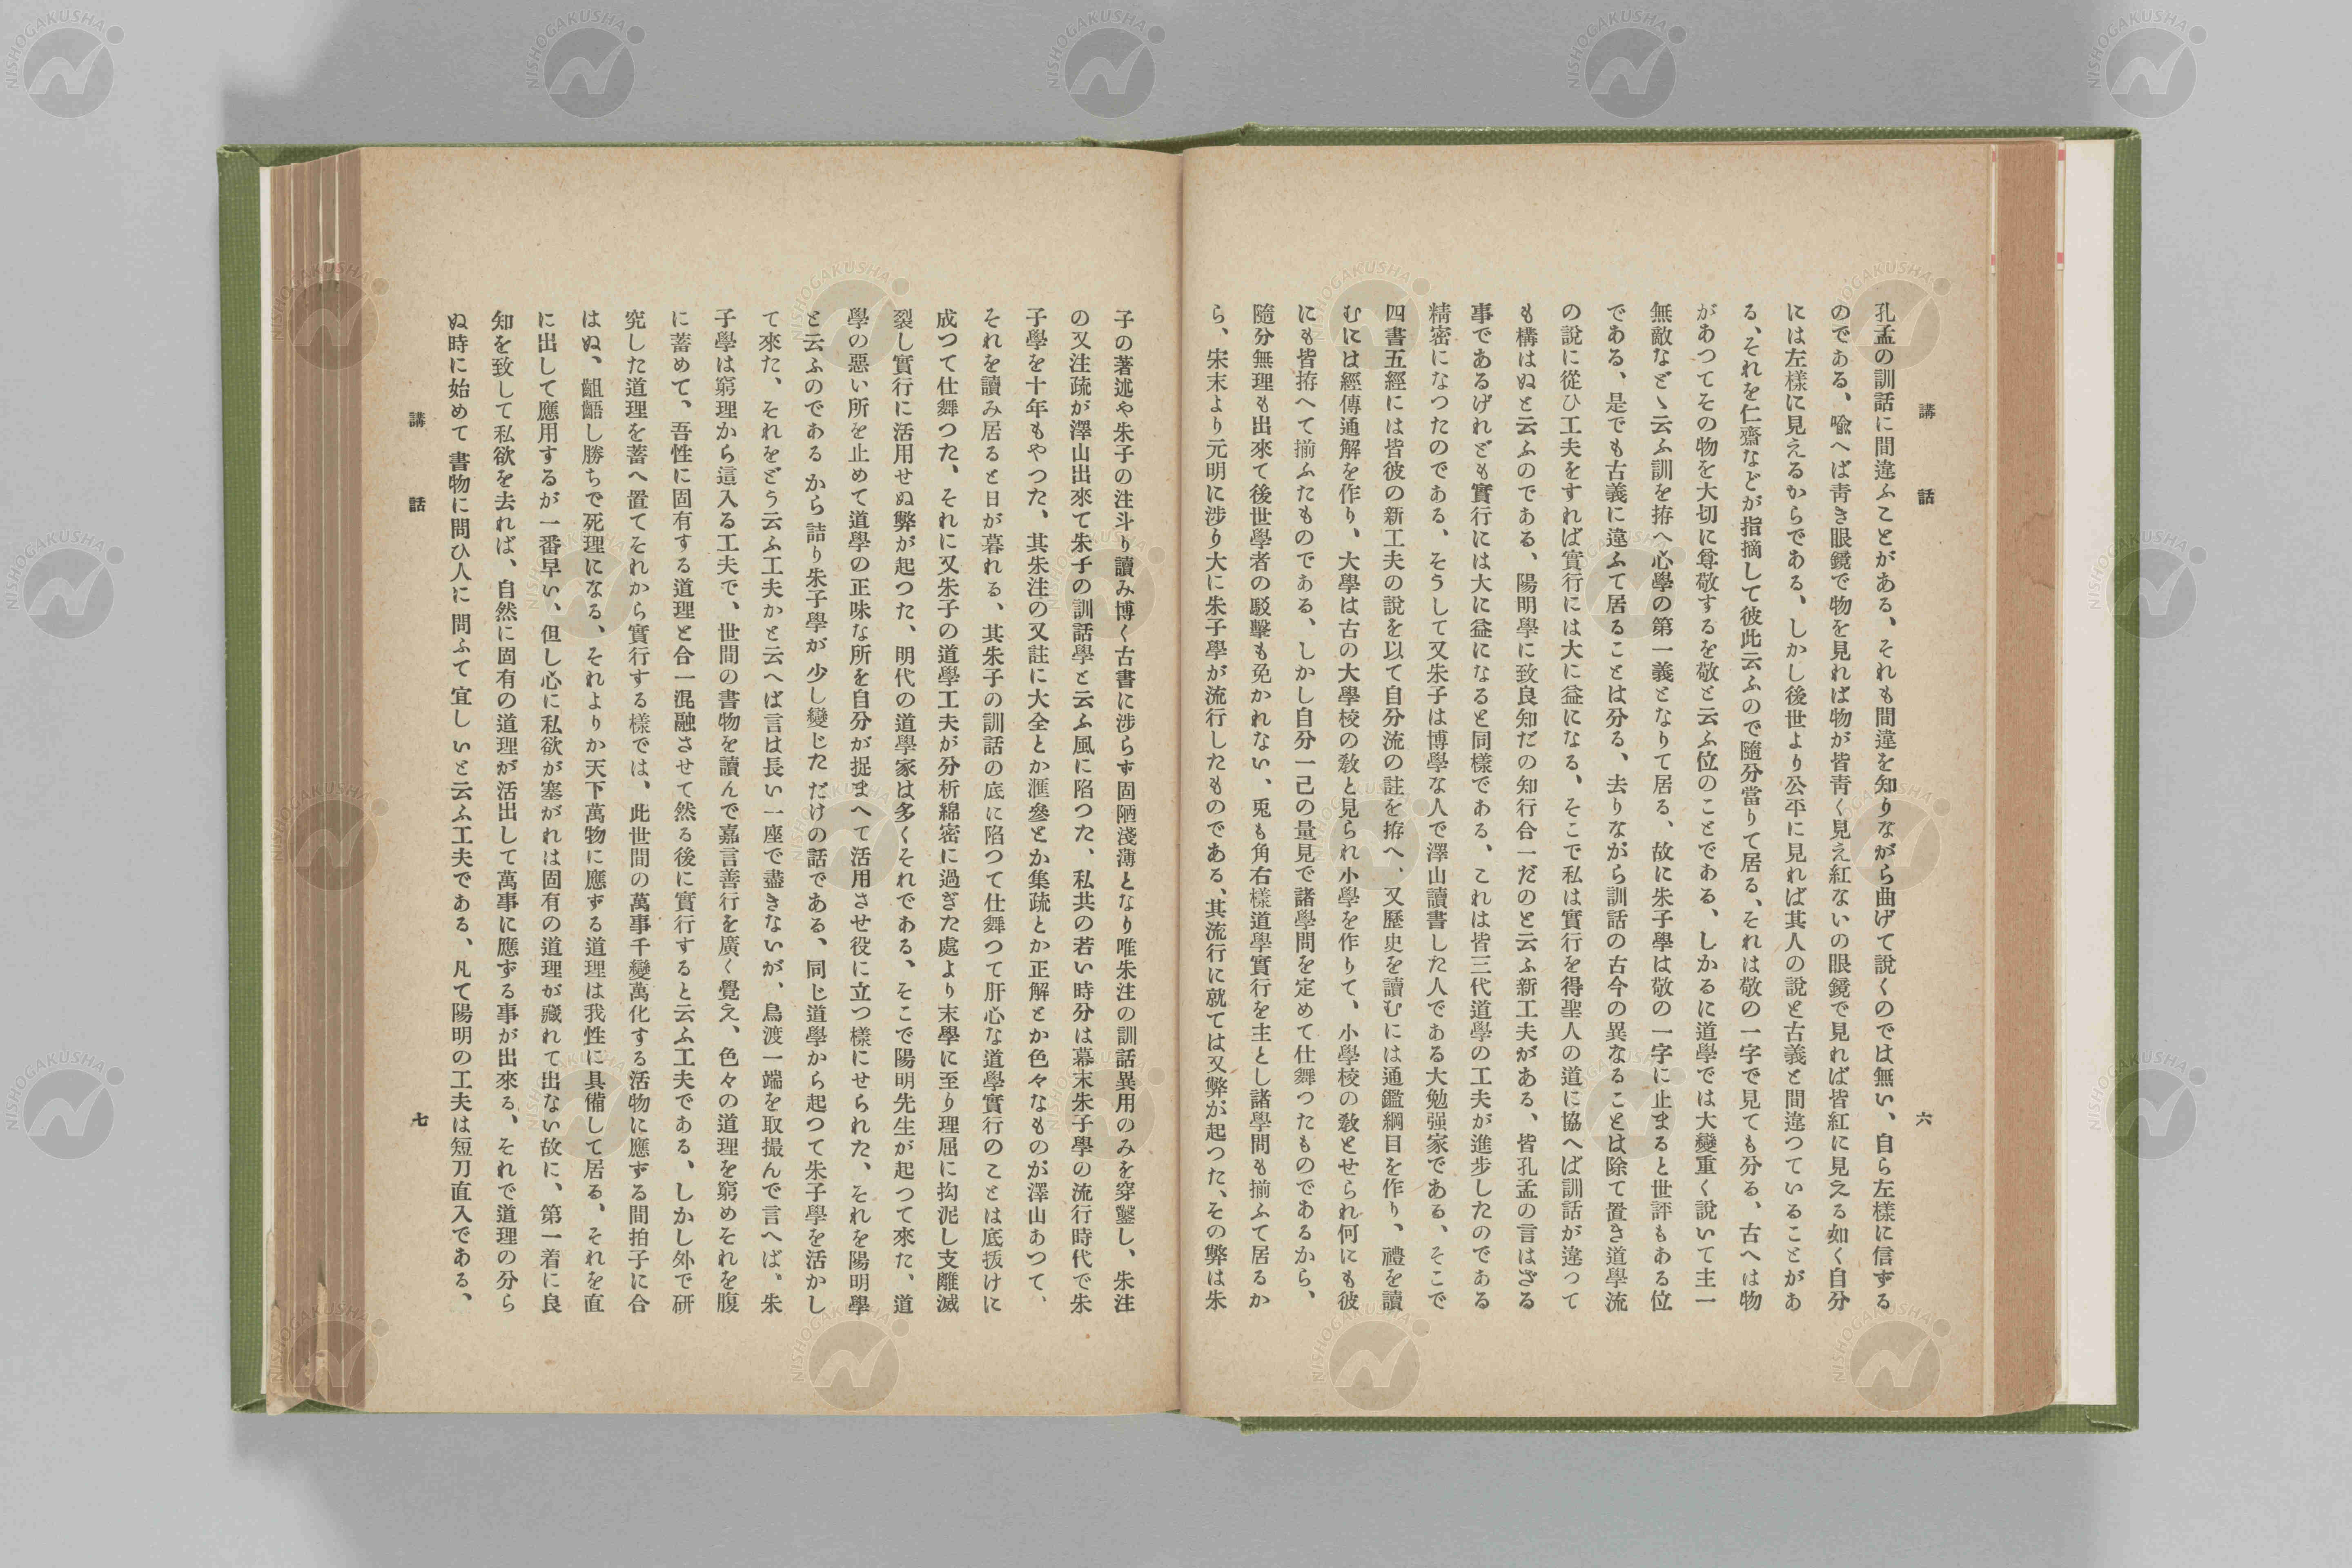 講話
六
孔孟の訓話に間違ふことがある、それも間違を知りながら曲げて說くのでは無い、自ら左樣に信ずる
のである、喩へば靑き眼鏡で物を見れば物が皆靑く見え紅ないの眼鏡で見れば皆紅に見える如く自分
には左樣に見えるからである、しかし後世より公平に見れば其人の說と古義と間違つていることがあ
る、それを仁齋などが指摘して彼此云ふので隨分當りて居る、それは敬の一字で見ても分る、古へは物
があつてその物を大切に尊敬するを敬と云ふ位のことである、しかるに道學では大變重く說いて主一
無敵などゝ云ふ訓を拵へ心學の第一義となりて居る、故に朱子學は敬の一字に止まると世評もある位
である、是でも古義に違ふて居ることは分る、去りながら訓話の古今の異なることは除て置き道學流
の說に從ひ工夫をすれば實行には大に益になる、そこで私は實行を得聖人の道に協へば訓話が違つて
も構はぬと云ふのである、陽明學に致良知だの知行合一だのと云ふ新工夫がある、皆孔孟の言はざる
事であるげれども實行には大に益になると同樣である、これは皆三代道學の工夫が進步したのである
精密になつたのである、そうして又朱子は博學な人で澤山讀書した人である大勉强家である、そこで
四書五經には皆彼の新工夫の說を以て自分流の註を拵へ、又歷史を讀むには通鑑綱目を作り、禮を讀
むには經傳通解を作り、大學は古の大學校の敎と見られ小學を作りて、小學校の敎とせられ何にも彼
にも皆拵へて揃ふたものである、しかし自分一己の量見で諸學問を定めて仕舞つたものであるから、
隨分無理も出來て後世學者の駁擊も免かれない、兎も角右樣道學實行を主とし諸學問も揃ふて居るか
ら、宋末より元明に涉り大に朱子學が流行したものである、其流行に就ては又弊が起つた、その弊は朱
子の著述や朱子の注斗り讀み博く古書に涉らず固陋淺薄となり唯朱注の訓話異用のみを穿鑿し、朱注
の又注疏が澤山出來て朱子の訓話學と云ふ風に陷つた、私共の若い時分は幕末朱子學の流行時代で朱
子學を十年もやつた、其朱注の又註に大全とか滙參とか集疏とか正解とか色々なものが澤山あつて、
それを讀み居ると日が暮れる、其朱子の訓話の底に陷つて仕舞つて肝心な道學實行のことは底拔けに
成つて仕舞つた、それに又朱子の道學工夫が分析綿密に過ぎた處より末學に至り理屈に拘泥し支離滅
裂し實行に活用せぬ弊が起つた、明代の道學家は多くそれである、そこで陽明先生が起つて來た、道
學の惡い所を止めて道學の正味な所を自分が捉まへて活用させ役に立つ樣にせられた、それを陽明學
と云ふのであるから詰り朱子學が少し變じただけの話である、同じ道學から起つて朱子學を活かし
て來た、それをどう云ふ工夫かと云へば言は長い一座で盡きないが、鳥渡一端を取撮んで言へば、朱
子學は窮理から這入る工夫で、世間の書物を讀んで嘉言善行を廣く覺え、色々の道理を窮めそれを腹
に蓄めて、吾性に固有する道理と合一混融させて然る後に實行すると云ふ工夫である、しかし外で硏
究した道理を蓄へ置てそれから實行する樣では、此世間の萬事千變萬化する活物に應ずる間拍子に合
はぬ、齟齬し勝ちで死理になる、それよりか天下萬物に應ずる道理は我性に具備して居る、それを直
に出して應用するが一番早い、但し心に私欲が塞がれは固有の道理が藏れて出ない故に、第一着に良
知を致して私欲を去れば、自然に固有の道理が活出して萬事に應ずる事が出來る、それで道理の分ら
ぬ時に始めて書物に問ひ人に問ふて宜しいと云ふ工夫である、凡て陽明の工夫は短刀直入である、
講話
七
NISHOGAKUSHA